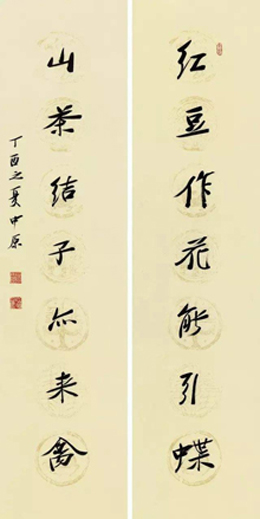 红豆作花能引蝶
山茶结子亦来禽
丁酉之夏中原